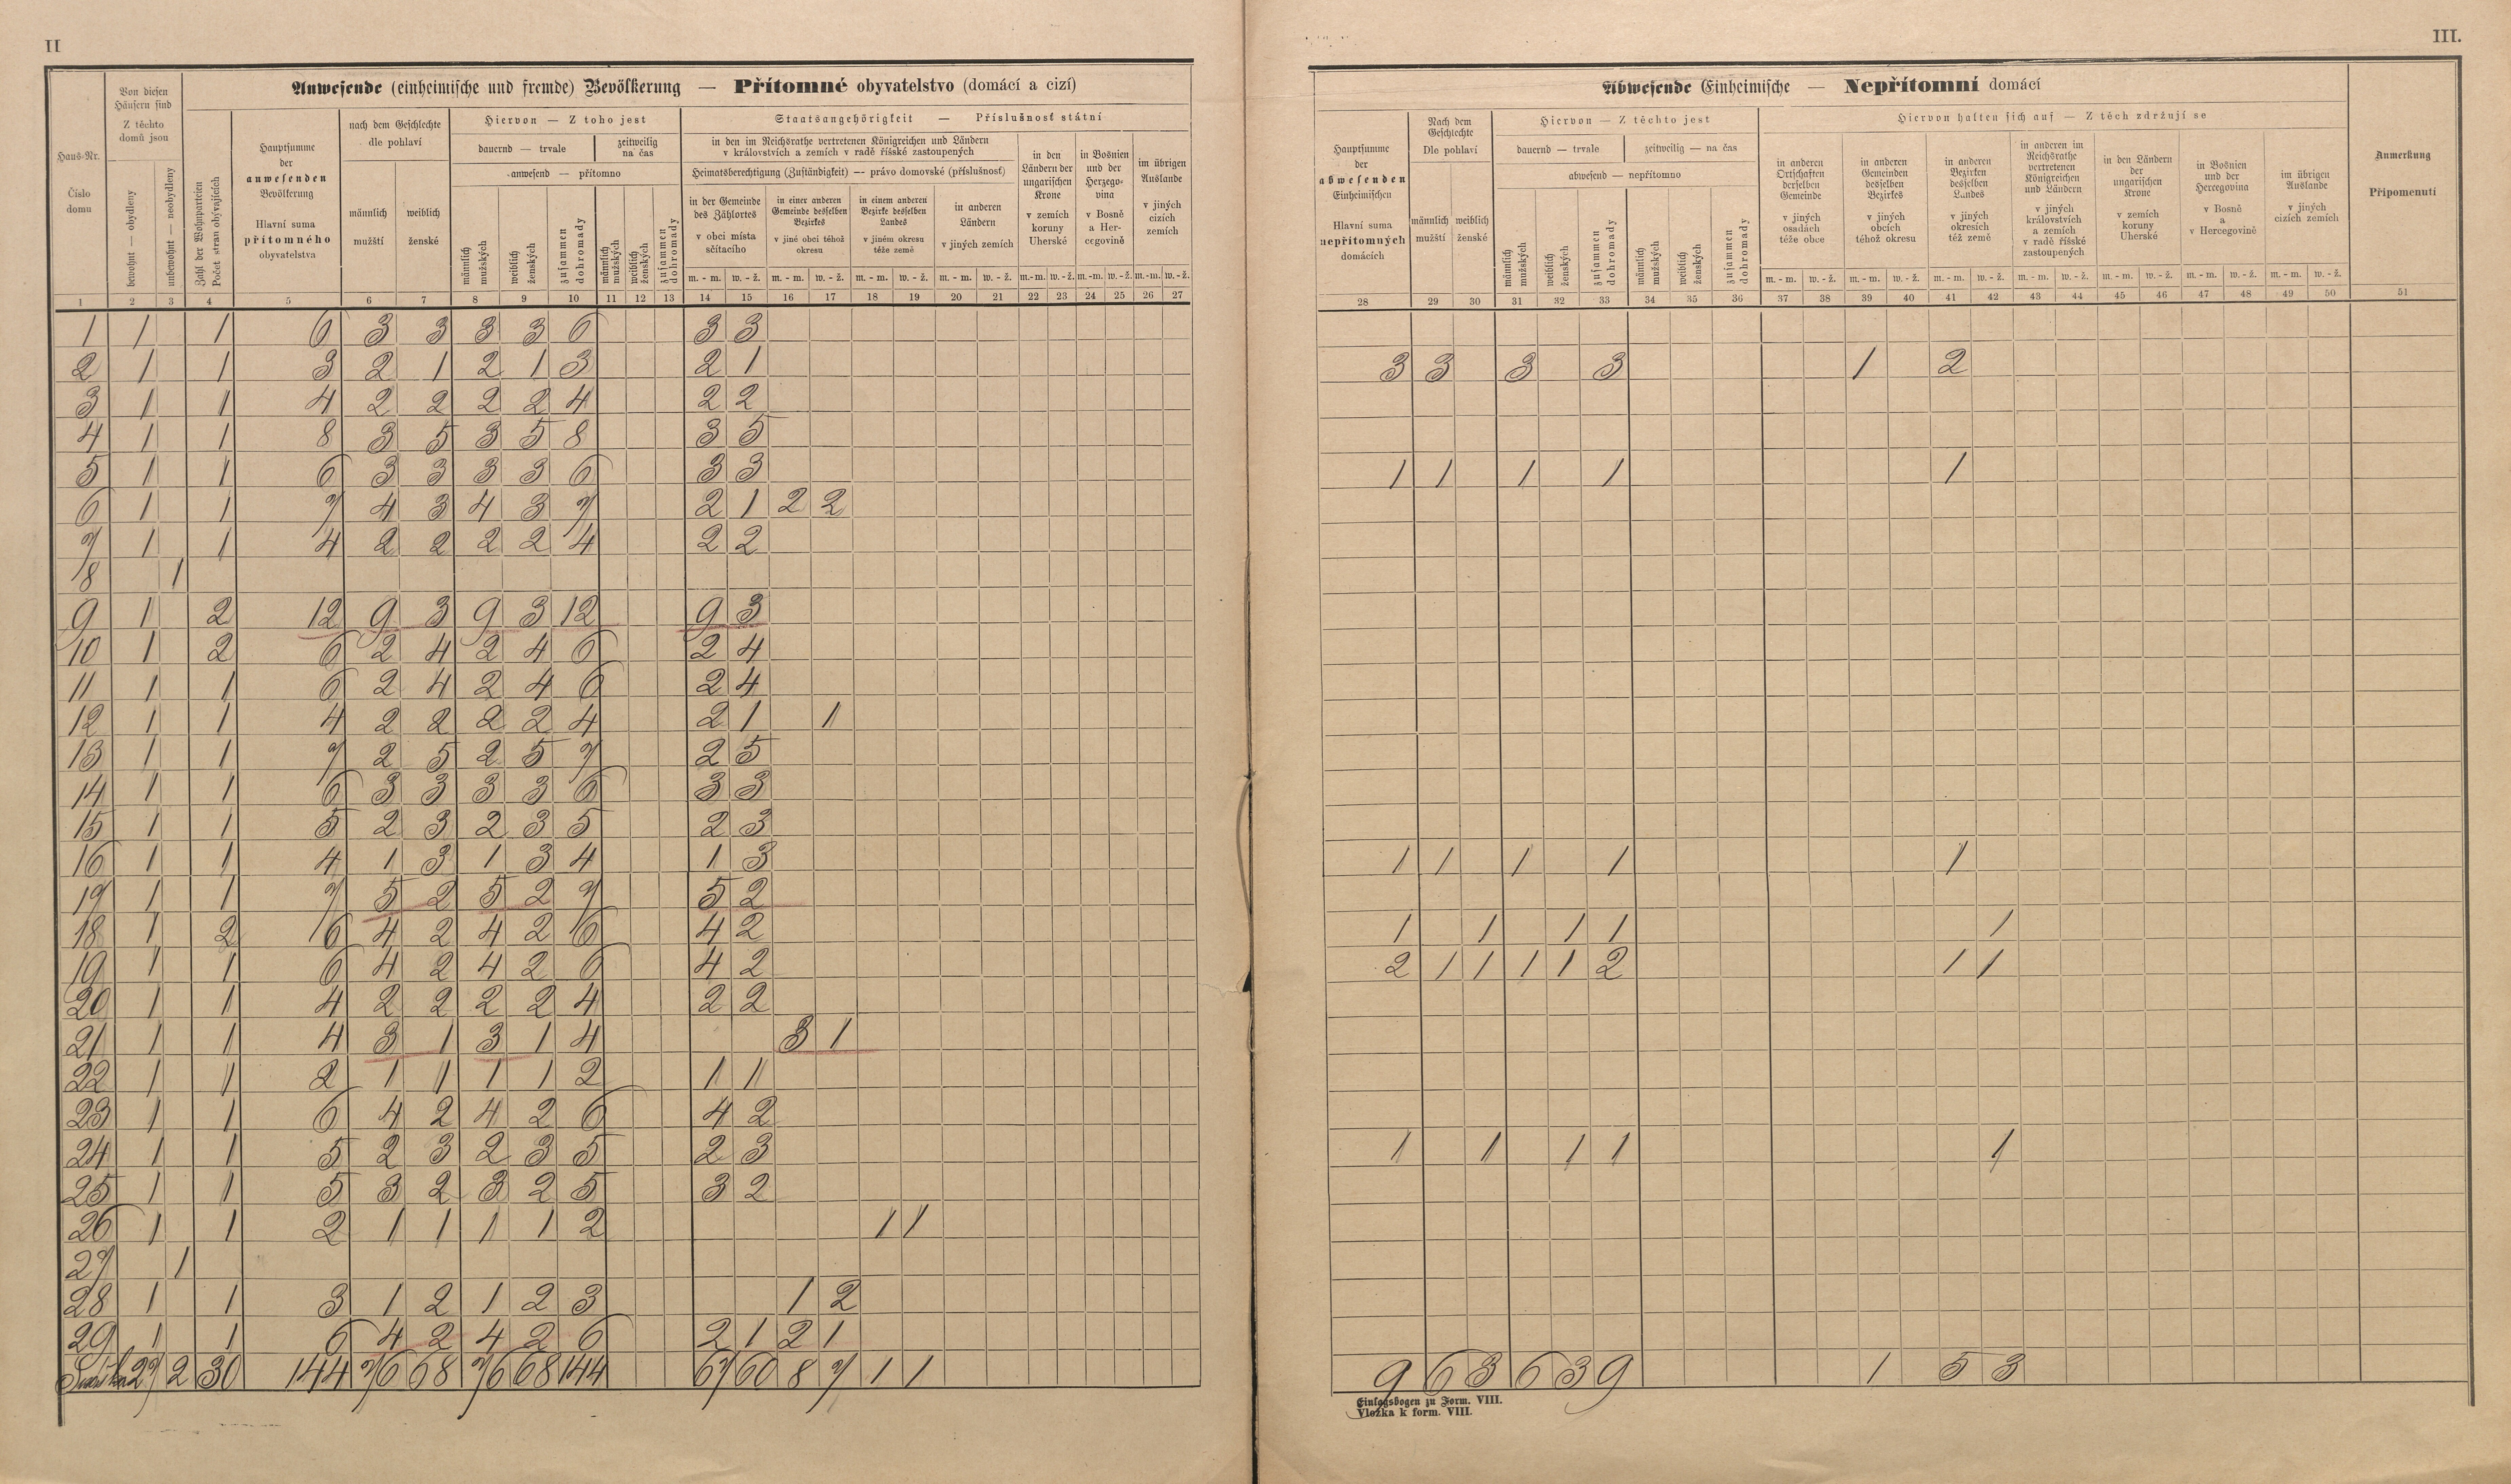 II
III.
Anwesende (einheimische und fremde) Bevölkerung — Přítomné obyvatelstvo (domácí a cizí)
Haus-Nr.
Číslo domu
Von diesen Häusern sind
Z těchto domů jsou
bewohnt — obydleny
unbewohnt — neobydleny
Zahl der Wohnparteien
Počet stran obývajících
Hauptsumme der anwesenden Bevölkerung
Hlavní suma přítomného obyvatelstva
nach dem Geschlechte
dle pohlaví
männlich mužští
weiblich ženské
Hiervon — Z toho jest
dauernd — trvale
zeitweilig na čas
anwesend — přítomno
männlich mužských
weiblich ženských
zusammen dohromady
männlich mužských
weiblich ženských
zusammen dohromady
Staatsangehörigkeit — Příslušnosť státní
in den im Reichsrathe vertretenen Königreichen und Ländern
v královstvích a zemích v radě říšské zastoupených
Heimatsberechtigung (Zuständigkeit) — právo domovské (příslušnosť)
in der Gemeinde des Zählortes
v obci místa sčítacího
in einer anderen Gemeinde desselben Bezirkes
v jiné obci téhož okresu
in einem anderen Bezirke desselben Landes
v jiném okresu téže země
in anderen Ländern
v jiných zemích
in den Ländern der ungarischen Krone
v zemích koruny Uherské
in Bosnien und der Herzegovina
v Bosně a Hercegovině
im übrigen Auslande
v jiných cizích zemích
m. - m. w. - ž. m. - m. w. - ž. m. - m. w. - ž. m. - m. w. - ž. m.-m. w. - ž. m.-m. w. - ž. m.-m. w. - ž.
1 2 3 4 5 6 7 8 9 10 11 12 13 14 15 16 17 18 19 20 21 22 23 24 25 26 27
1 1 1 6 3 3 3 3 6 3 3
2 1 1 3 2 1 2 1 3 2 1
3 1 1 4 2 2 2 2 4 2 2
4 1 1 8 3 5 3 5 8 3 5
5 1 1 6 3 3 3 3 6 3 3
6 1 1 7 4 3 4 3 7 2 1 2 2
7 1 1 4 2 2 2 2 4 2 2
8 1
9 1 2 12 9 3 9 3 12 9 3
10 1 2 6 2 4 2 4 6 2 4
11 1 1 6 2 4 2 4 6 2 4
12 1 1 4 2 2 2 2 4 2 1 1
13 1 1 7 2 5 2 5 7 2 5
14 1 1 6 3 3 3 3 6 3 3
15 1 1 5 2 3 2 3 5 2 3
16 1 1 4 1 3 1 3 4 1 3
17 1 1 7 5 2 5 2 7 5 2
18 1 2 6 4 2 4 2 6 4 2
19 1 1 6 4 2 4 2 6 4 2
20 1 1 4 2 2 2 2 4 2 2
21 1 1 4 3 1 3 1 4 3 1
22 1 1 2 1 1 1 1 2 1 1
23 1 1 6 4 2 4 2 6 4 2
24 1 1 5 2 3 2 3 5 2 3
25 1 1 5 3 2 3 2 5 3 2
26 1 1 2 1 1 1 1 2 1 1
27 1
28 1 1 3 1 2 1 2 3 1 2
29 1 1 6 4 2 4 2 6 2 1 2 1
27 2 30 144 76 68 76 68 144 67 60 8 7 1 1
Abwesende Einheimische — Nepřítomní domácí
Hauptsumme der abwesenden Einheimischen
Hlavní suma nepřítomných domácích
Nach dem Geschlechte
Dle pohlaví
männlich mužští
weiblich ženské
Hiervon — Z těchto jest
dauernd — trvale
zeitweilig — na čas
abwesend — nepřítomno
männlich mužských
weiblich ženských
zusammen dohromady
männlich mužských
weiblich ženských
zusammen dohromady
Hiervon halten sich auf — Z těch zdržují se
in anderen Ortschaften derselben Gemeinde
v jiných osadách téže obce
in anderen Gemeinden desselben Bezirkes
v jiných obcích téhož okresu
in anderen Bezirken desselben Landes
v jiných okresích též země
in anderen im Reichsrathe vertretenen Königreichen und Ländern
v jiných královstvích a zemích v radě říšské zastoupených
in den Ländern der ungarischen Krone
v zemích koruny Uherské
in Bosnien und der Hercegovina
v Bosně a v Hercegovině
im übrigen Auslande
v jiných cizích zemích
Anmerkung
Připomenutí
m. - m. w. - ž. m. - m. w. - ž. m. - m. w. - ž. m. - m. w. - ž. m. - m. w. - ž. m. - m. w. - ž. m. - m. w. - ž.
28 29 30 31 32 33 34 35 36 37 38 39 40 41 42 43 44 45 46 47 48 49 50 51
3 3 3 3 1 2
1 1 1 1 1
1 1 1 1 1
1 1 1 1 1
2 1 1 1 1 2 1 1
1 1 1 1 1
9 6 3 6 3 9 1 5 3
Einlagsbogen zu Form. VIII.
Vložka k form. VIII.